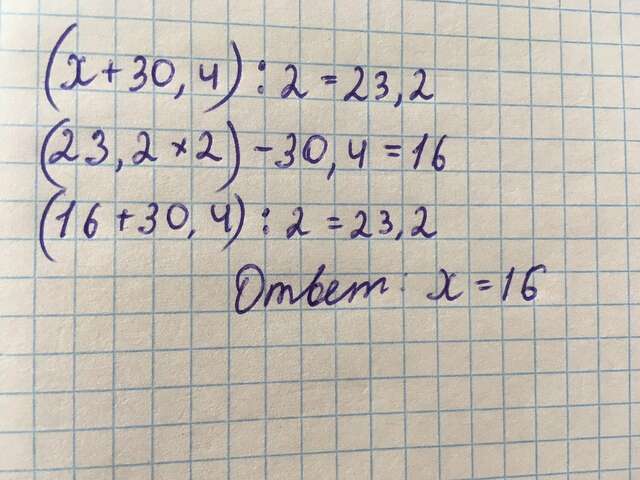 (x + 30,4) : 2 = 23,2
(23,2 × 2) - 30,4 = 16
(16 + 30,4) : 2 = 23,2
Ответ: x = 16